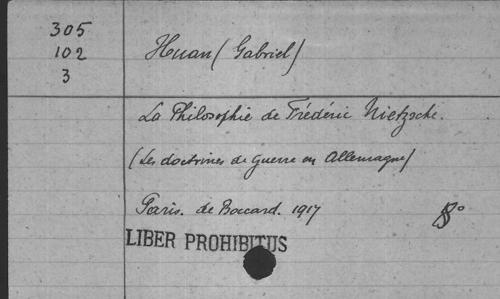 305
102
3
Huan (Gabriel)
La Philosophie de Frédéric Nietzsche.
(Les doctrines de Guerre en Allemagne)
Paris. de Boccard. 1917 8°
LIBER PROHIBITUS